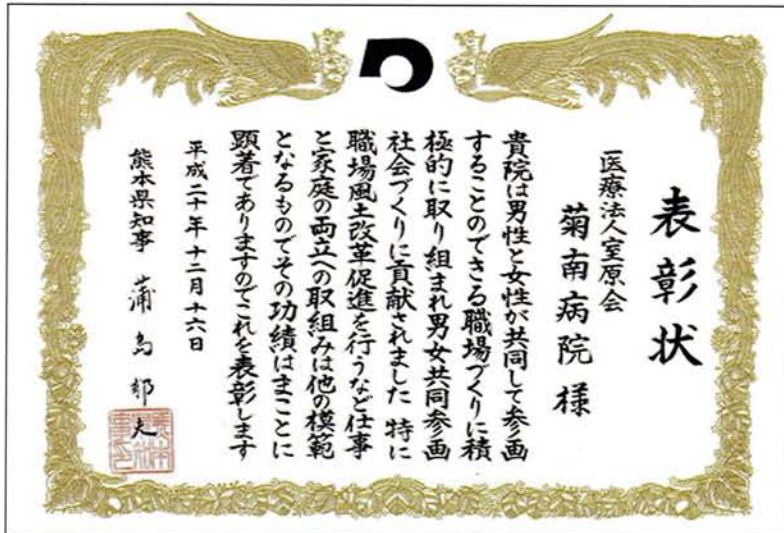 表彰状
医療法人室原会
菊南病院 様
貴院は男性と女性が共同して参画
することのできる職場づくりに積
極的に取り組まれ男女共同参画
社会づくりに貢献されました 特に
職場風土改革促進を行うなど仕事
と家庭の両立への取組みは他の模範
となるものでその功績はまことに
顕著でありますのでこれを表彰します
平成二十年十二月十六日
熊本県知事 蒲島郁夫